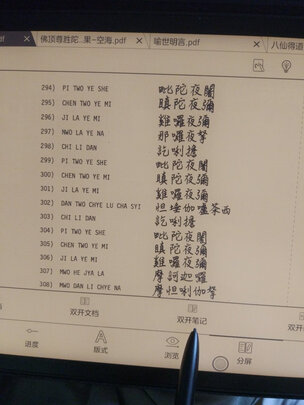 .pdf × 佛顶尊胜陀...果-空海.pdf × 喻世明言.pdf × 八仙得道
294) PI TWO YE SHE 毗陀夜闍
295) CHEN TWO YE MI 瞋陀夜彌
296) JI LA YE MI 雞囉夜彌
297) NWO LA YE NA 那囉夜拏
298) CHI LI DAN 訖唎擔
299) PI TWO YE SHE 毗陀夜闍
300) CHEN TWO YE MI 瞋陀夜彌
301) JI LA YE MI 雞囉夜彌
302) DAN TWO CHYE LU CHA SYI 怛埵伽嚧茶西
303) CHI LI DAN 訖唎擔
304) PI TWO YE SHE 毗陀夜闍
305) CHEN TWO YE MI 瞋陀夜彌
306) JI LA YE MI 雞囉夜彌
307) MWO HE JYA LA 摩訶迦囉
308) MWO DAN LI CHYE NA 摩怛唎伽拏
双开文档 双开笔记 双开
进度 版式 浏览 分屏